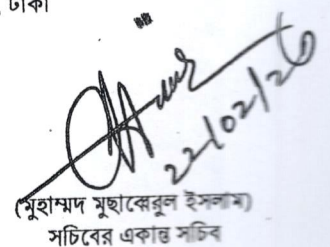 ঢাকা
22/02/26
(মুহাম্মদ মুহাসেরুল ইসলাম)
সচিবের একান্ত সচিব